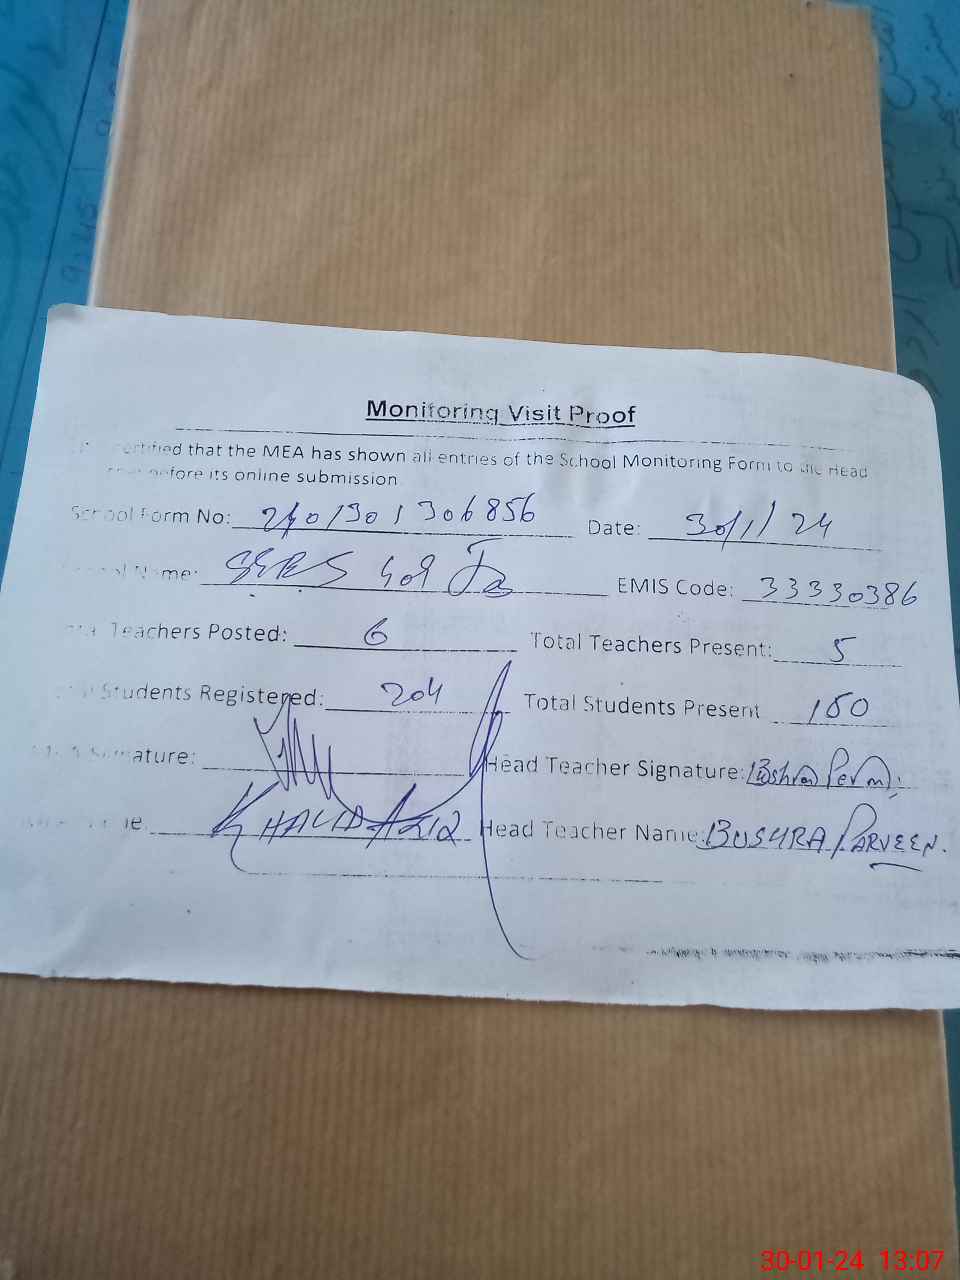 Monitoring Visit Proof
certified that the MEA has shown all entries of the School Monitoring Form to the Head
before its online submission
School Form No: 2401301306856 Date: 30/1/24
Name: 409 EMIS Code: 33330386
Teachers Posted: 6 Total Teachers Present: 5
Students Registered: 204 Total Students Present 150
Signature: Head Teacher Signature: Bushra
KHALID AZIZ Head Teacher Name: BUSHRA PARVEEN.
30-01-24 13:07